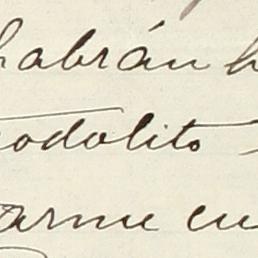 habrán h
odolito
arme en